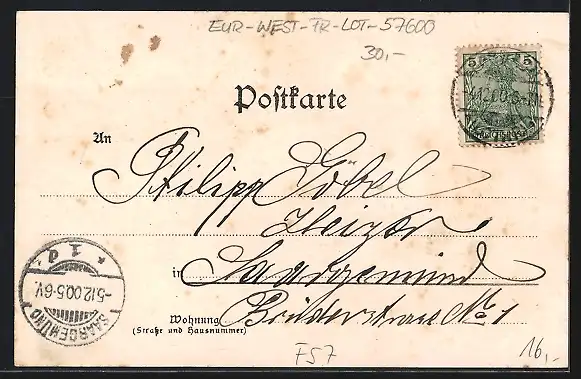 EUR-WEST-FR-LOT-57600
30,-
5 5
Postkarte
An
Philipp Göbel
Heizer
in Saargemünd
Wohnung Brüderstrasse No 1
(Straße und Hausnummer)
* 1 d
-5.12.00.5-6V.
SAARGEMÜND
F57
16,-